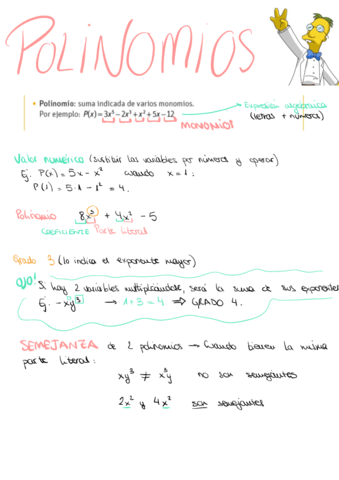 POLINOMIOS
• Polinomio: suma indicada de varios monomios.
Por ejemplo: P(x) = 3x⁵ − 2x³ + x² + 5x − 12
Expresión algebraica
(letras + números)
MONOMIOS
Valor numérico (sustituir las variables por números y operar)
Ej. P(x) = 5x − x² cuando x = 1:
P(1) = 5·1 − 1² = 4.
Polinomio 8x³ + 4x² − 5
COEFICIENTE Parte literal
Grado 3 (lo indica el exponente mayor)
¡OJO! Si hay 2 variables multiplicándose, será la suma de sus exponentes
Ej. −xy³ → 1+3 = 4 ⇒ GRADO 4.
SEMEJANZA de 2 polinomios → Cuando tienen la misma
parte literal:
xy³ ≠ x³y no son semejantes
2x² y 4x² son semejantes